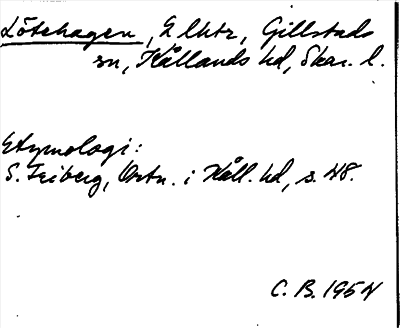 Lötehagen, 2 lhtr, Gillstads
sn, Kållands hd, Skar. l.
Etymologi:
S. Feiberg, Ortn. i Kåll. hd, s. 48.
C. B. 1954